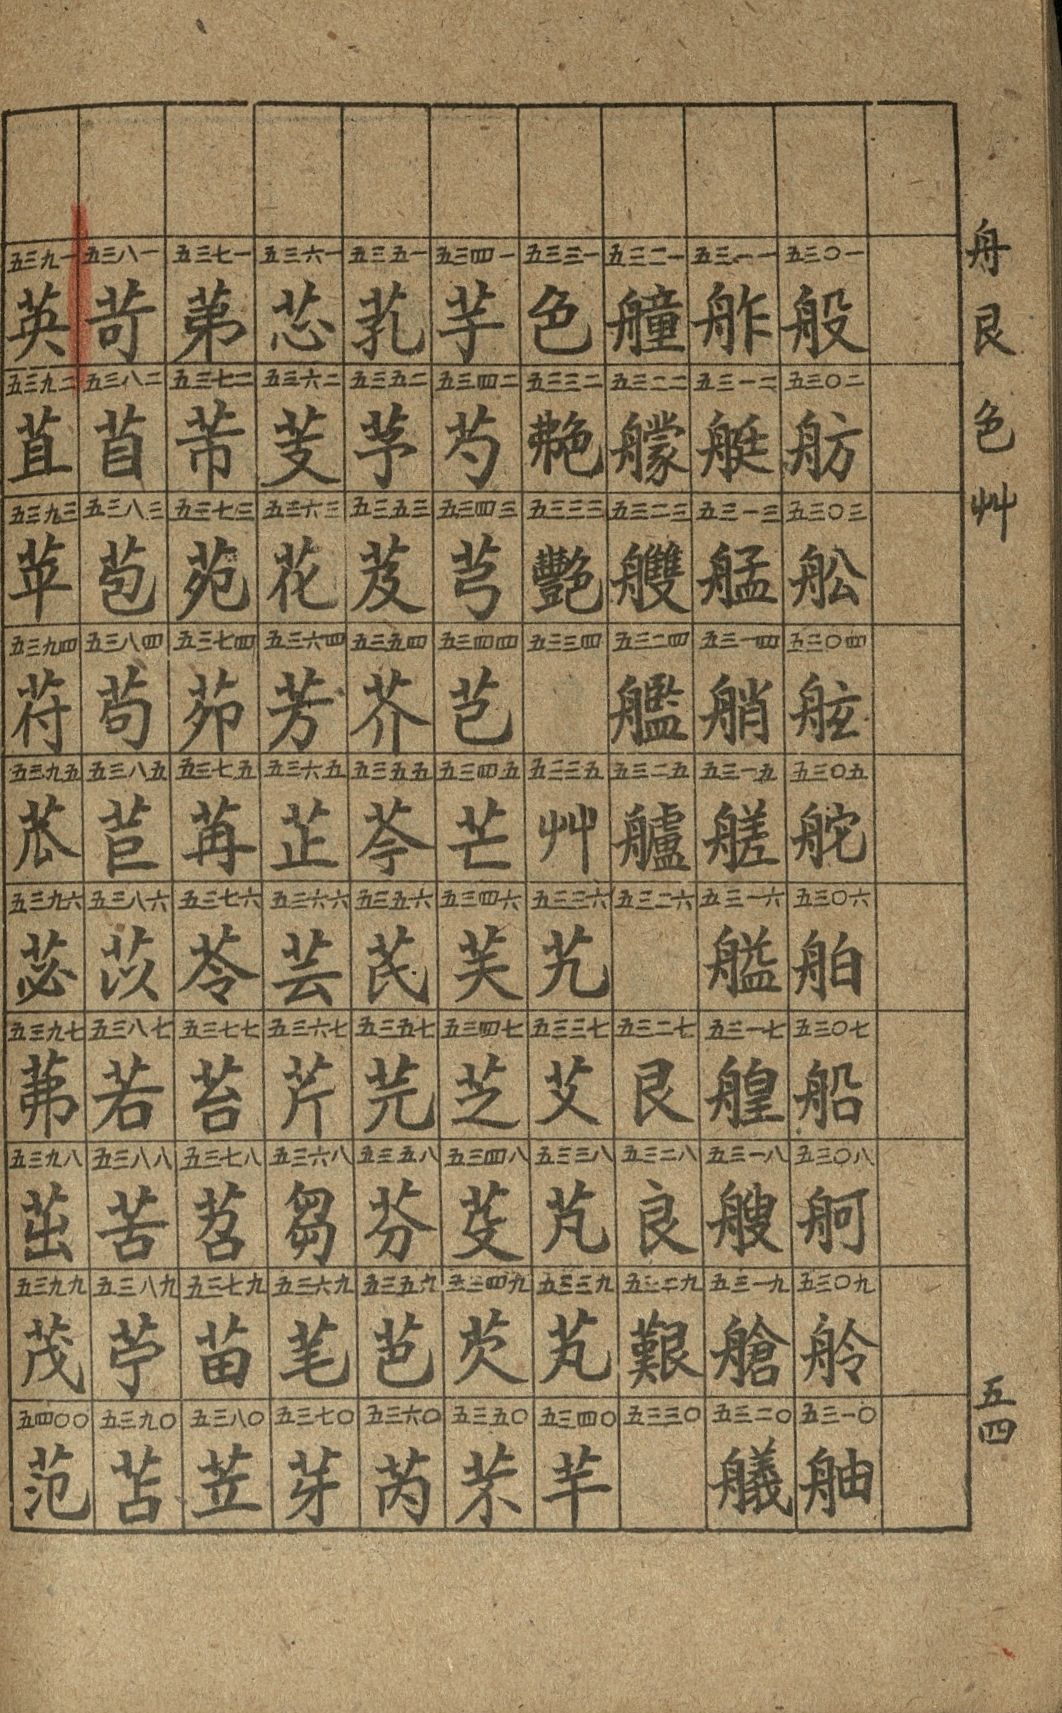 舟艮色艸
五四
五三〇一 般 五三〇二 舫 五三〇三 舩 五三〇四 舷 五三〇五 舵 五三〇六 舶 五三〇七 船 五三〇八 舸 五三〇九 舲 五三一〇 舳
五三一一 舴 五三一二 艇 五三一三 艋 五三一四 艄 五三一五 艖 五三一六 艗 五三一七 艎 五三一八 艘 五三一九 艙 五三二〇 艤
五三二一 艟 五三二二 艨 五三二三 艭 五三二四 艦 五三二五 艫 五三二六 五三二七 艮 五三二八 良 五三二九 艱 五三三〇
五三三一 色 五三三二 艴 五三三三 艷 五三三四 五三三五 艸 五三三六 艽 五三三七 艾 五三三八 芃 五三三九 芄 五三四〇 芊
五三四一 芋 五三四二 芍 五三四三 芎 五三四四 芑 五三四五 芒 五三四六 芙 五三四七 芝 五三四八 芟 五三四九 芡 五三五〇 芣
五三五一 芤 五三五二 芧 五三五三 芨 五三五四 芥 五三五五 芩 五三五六 芪 五三五七 芫 五三五八 芬 五三五九 芭 五三六〇 芮
五三六一 芯 五三六二 芰 五三六三 花 五三六四 芳 五三六五 芷 五三六六 芸 五三六七 芹 五三六八 芻 五三六九 芼 五三七〇 芽
五三七一 苐 五三七二 芾 五三七三 苑 五三七四 茆 五三七五 苒 五三七六 苓 五三七七 苔 五三七八 苕 五三七九 苗 五三八〇 苙
五三八一 苛 五三八二 苜 五三八三 苞 五三八四 苟 五三八五 苣 五三八六 苡 五三八七 若 五三八八 苦 五三八九 苧 五三九〇 苫
五三九一 英 五三九二 苴 五三九三 苹 五三九四 苻 五三九五 苽 五三九六 苾 五三九七 茀 五三九八 茁 五三九九 茂 五四〇〇 范